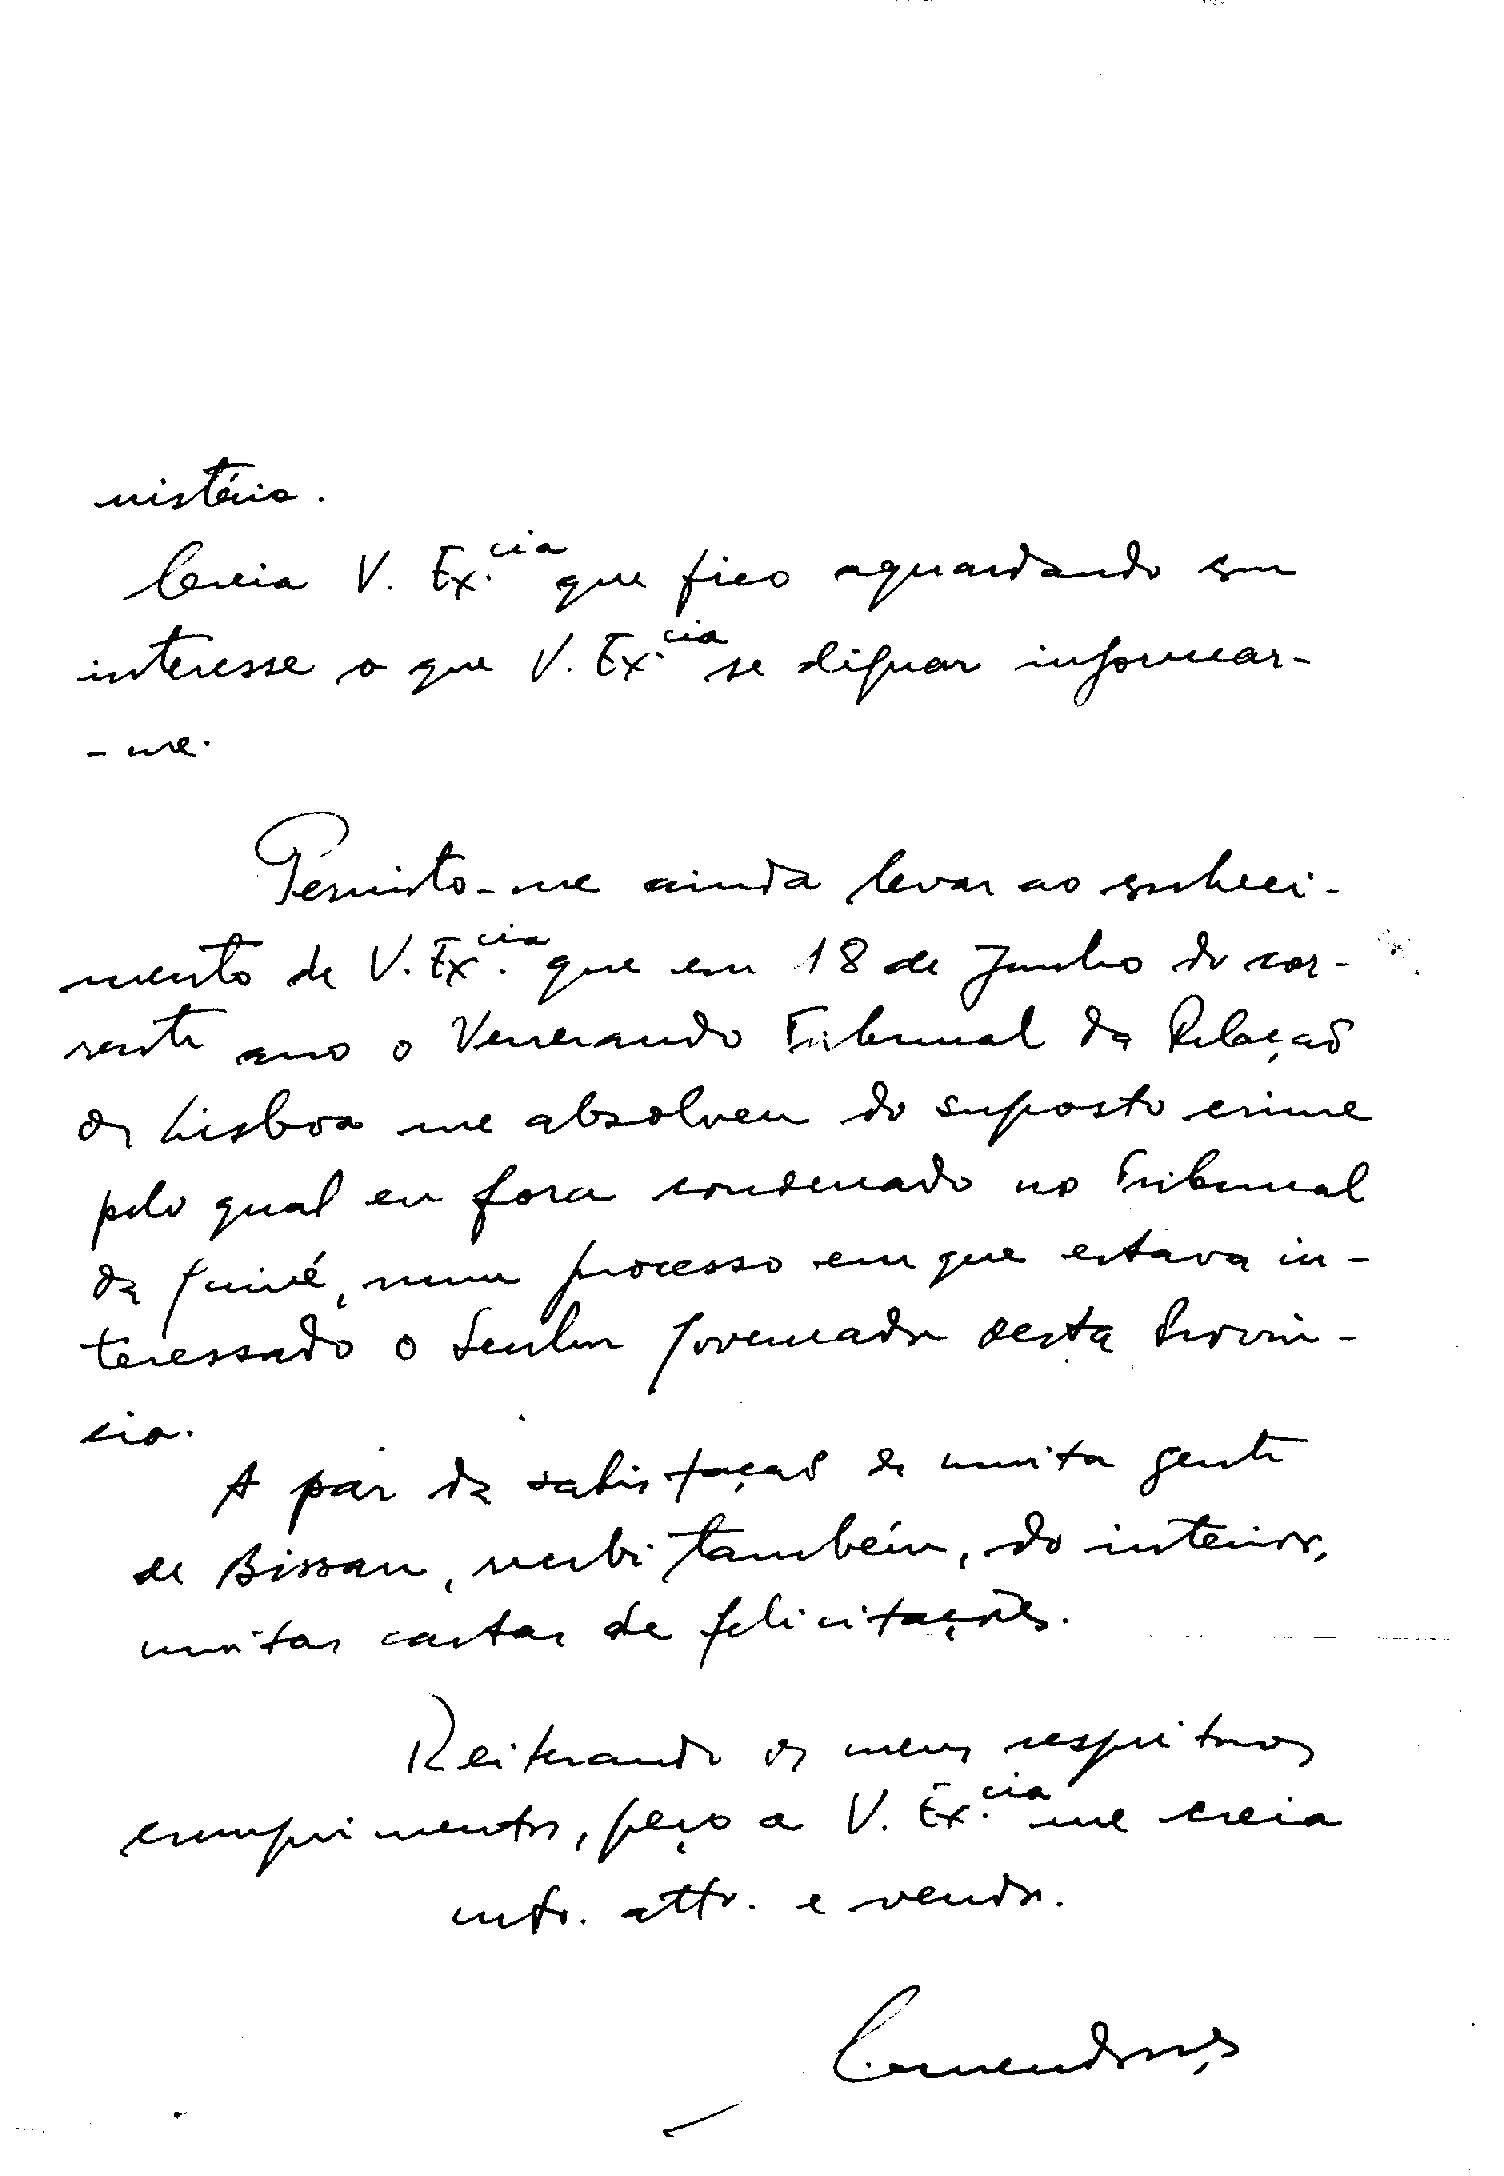 nistério.
Creia V. Ex.cia que fico aguardando com
interesse o que V. Ex.cia se dignar informar-
-me.
Permito-me ainda levar ao conheci-
mento de V. Ex.cia que em 18 de Junho do cor-
rente ano o Venerando Tribunal da Relação
de Lisboa me absolveu do suposto crime
pelo qual eu fora condenado no Tribunal
da Guiné, num processo em que estava in-
teressado o Senhor Governador desta Provín-
cia.
A par da satisfação de muita gente
de Bissau, recebi também, do interior,
muitas cartas de felicitações.
Reiterando os meus respeitosos
cumprimentos, peço a V. Ex.cia me creia
mto. atto. e vendor.